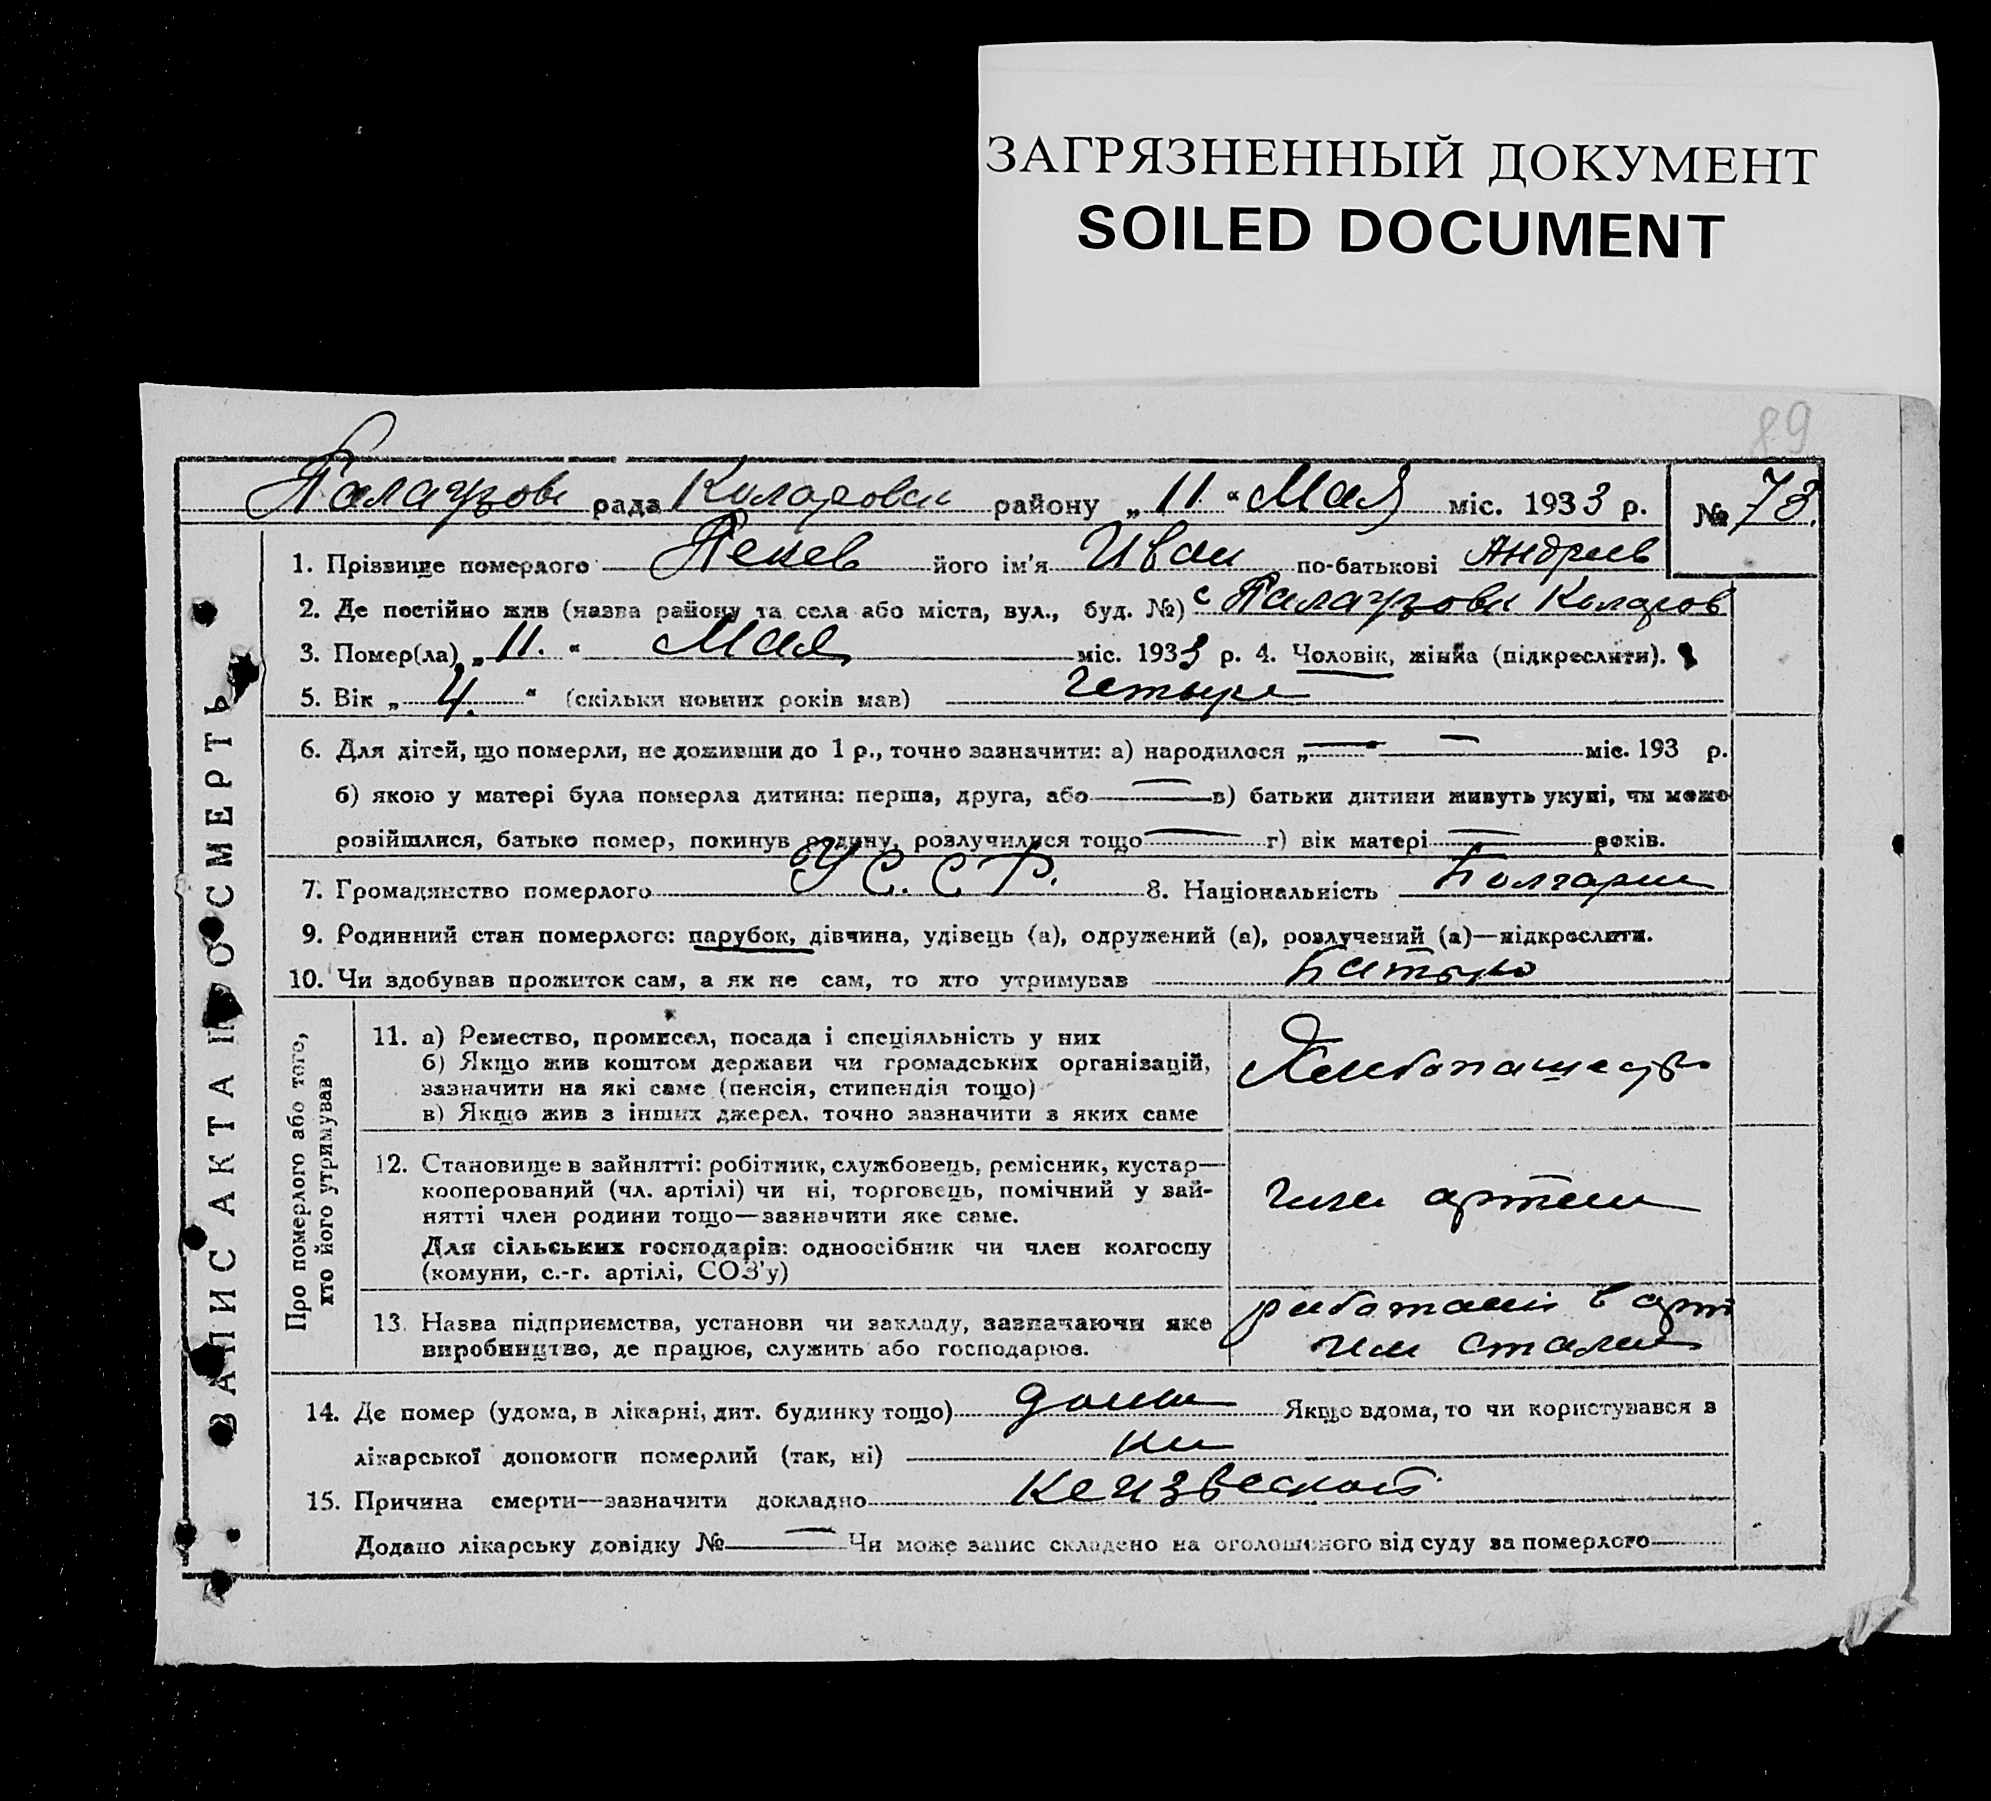 ЗАГРЯЗНЕННЫЙ ДОКУМЕНТ
SOILED DOCUMENT
89
Палаузов рада Коларовск району „11.“ Мая міс. 1933 р. № 73.
ЗАПИС АКТА ПРО СМЕРТЬ
1. Прізвище померлого Пенев його ім'я Иван по-батькові Андреев
2. Де постійно жив (назва району та села або міста, вул., буд. №) с Палаузовк Коларов
3. Помер(ла) „11.“ Мая міс. 1933 р. 4. Чоловік, жінка (підкреслити).
5. Вік „4.“ (скільки повних років мав) Четыре
6. Для дітей, що померли, не доживши до 1 р., точно зазначити: а) народилося „—“ — міс. 193 р.
б) якою у матері була померла дитина: перша, друга, або — в) батьки дитини живуть укупі, чи може
ровійшлися, батько помер, покинув родину, розлучилися тощо — г) вік матері — років.
7. Громадянство померлого У С. С Р. 8. Національність Болгарин
9. Родинний стан померлого: парубок, дівчина, удівець (а), одружений (а), розлучений (а)—підкреслити.
10. Чи здобував прожиток сам, а як не сам, то хто утримував Батько
Про померлого або того,
хто його утримував
11. а) Ремество, промисел, посада і спеціяльність у них
б) Якщо жив коштом держави чи громадських організацій,
зазначити на які саме (пенсія, стипендія тощо)
в) Якщо жив з інших джерел, точно зазначити з яких саме
12. Становище в зайнятті: робітник, службовець, ремісник, кустар—
кооперований (чл. артілі) чи ні, торговець, помічний у зай-
нятті член родини тощо—зазначити яке саме.
Для сільських господарів: одноосібник чи член колгоспу
(комуни, с.-г. артілі, СОЗ'у)
член артели
13. Назва підприємства, установи чи закладу, зазначаючи яке
виробництво, де працює, служить або господарює.
в арт
им Сталин
14. Де помер (удома, в лікарні, дит. будинку тощо) дома Якщо вдома, то чи користувався з
лікарської допомоги померлий (так, ні) ни
15. Причина смерти—зазначити докладно
Додано лікарську довідку № — Чи може запис складено на оголошеного від суду за померлого